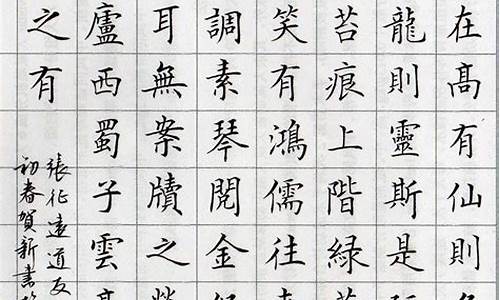 在髙有仙則
龍則靈斯是
苔痕上階緑
笑有鴻儒往
調素琴閱金
耳無案牘之
廬西蜀子雲
之有
張征遠道友
初春賀新書